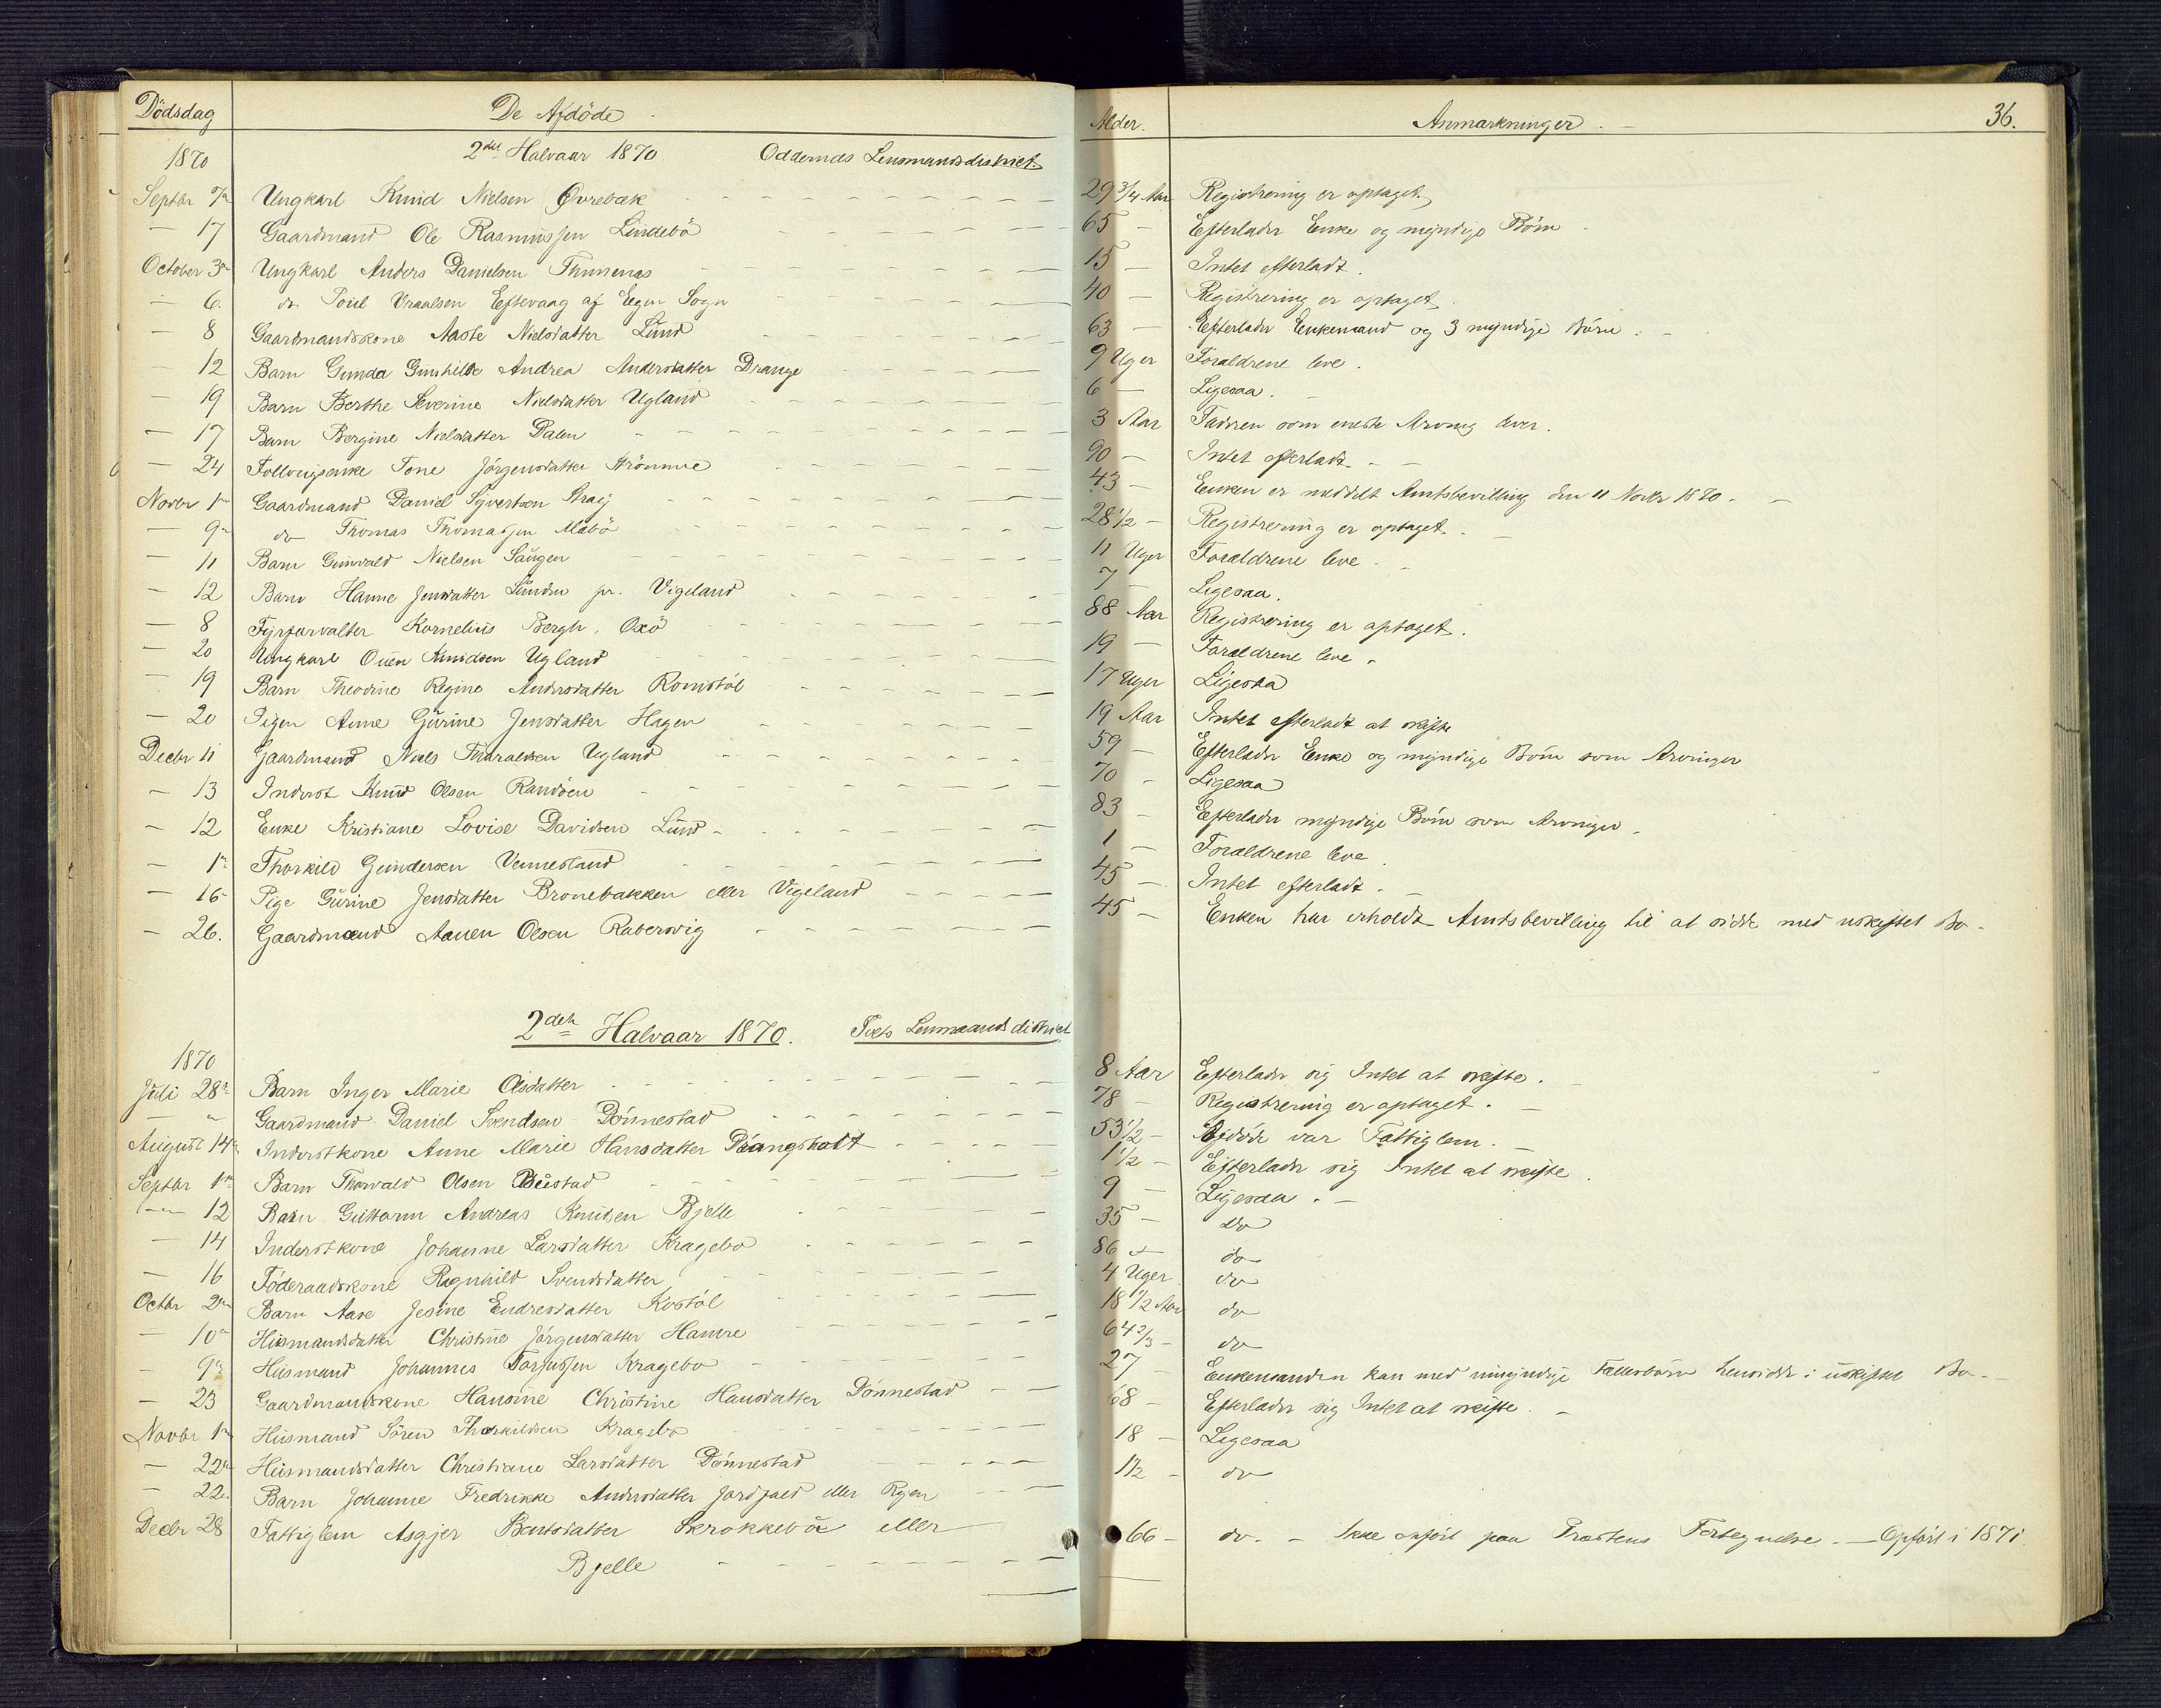 Dödsdag De Afdöde Alder. Anmærkninger. 36.
1870 2det Halvaar 1870 Oddernæs Lensmandsdistrict.
Septbr Ungkarl Knud Nielsen Øvrebæk 29 3/4 Aar Registrering er optaget.
— 17 Gaardmand Ole Rasmussen Lindebö 65 — Efterlader Enke og myndige Börn
October 3die Ungkarl Anders Danielsen 15 — Intet efterladt.
— 6. do Poul Vraalsen Eftevaag af Egen Sogn 40 — Registrering er optaget.
— 8 Gaardmandskone Aaste Nielsdatter Lund 63 — Efterlader Enkemand og 3 myndige Börn. —
— 12 Barn Gunda Gunhilde Andrea Andersdatter Drange 9 Uger Forældrene leve.
— 19 Barn Berthe Severine Nielsdatter Ugland 6 — Ligesaa. —
— 17 Barn Bergine Nielsdatter Dalen 3 Aar Faderen som eneste Arving lever.
— 24 Tone Jörgensdatter Strömme 90 — Intet efterladt. —
Novbr 1ste Gaardmand Daniel Syvertsen Stray 43 — Enken er meddelt Amtsbevilling den 11 Novbr 1870. —
— 9de do Thomas Thomassen Mæbö 28 1/2 — Registrering er optaget. —
— 11 Barn Gunvald Nielsen Saugen 11 Uger Forældrene leve. —
— 12 Barn Hanne Jensdatter Lunden pr. Vigeland 7 — Ligesaa.
— 8 Fyrforvalter Kornelius Bergh, Oxö 88 Aar Registrering er optaget.
— 20 Ungkarl Ouen Knudsen Ugland 19 — Forældrene leve.
— 19 Barn Theodine Regine Andersdatter Romstöl 17 Uger Ligesaa
— 20 Pigen Anne Gurine Jensdatter Hagen 19 Aar Intet efterladt at skifte
Decbr 11 Gaardmand Niels Tharaldsen Ugland 59 — Efterlader Enke og myndige Börn som Arvinger
— 13 Inderst Knud Olsen Randöen 70 — Ligesaa
— 12 Enke Kristiane Lovise Davidsen Lund 83 — Efterlader myndige Börn som Arvinger.
— 1ste Thorkild Gundersen Vennesland 1 — Forældrene leve.
— 16 Pige Gurine Jensdatter Bronebakken eller Vigeland 45 — Intet efterladt. —
— 26. Gaardmand Aanen Olsen Rabersvig 45 — Enken har erholdt Amtsbevilling til at sidde med uskiftet Bo.
2det Halvaar 1870. Tvets Lensmandsdistrict
1870
Juli 28de Barn Inger Marie Olsdatter 8 Aar Efterlader sig Intet at skifte. —
— " Gaardmand Daniel Svendsen Dönnestad 78 — Registrering er optaget. —
August 14de Inderstkone Anne Marie Hansdatter Drangsholt 53 1/2 — Afdöde var Fattiglem. —
Septbr 1ste Barn Thorvald Olsen Bustad 1 1/2 — Efterlader sig Intet at skifte.
— 12 Barn Guttorm Andreas Knudsen Bjelle 9 — Ligesaa. —
— 14 Inderstkone Johanne Larsdatter Kragebo 35 — do
— 16 Föderaadskone Ragnhild Svendsdatter 86 — do
Octbr 2den Barn Aase Jesine Endresdatter Kostöl 4 Uger do
— 10de Husmandsdatter Christine Jörgensdatter Hamre 18 1/2 Aar do
— 9de Husmand Johannes Torjussen Kragebo 64 2/3 — do
— 23 Gaardmandskone Hansine Christine Hansdatter Dönnestad 27 Enkemanden kan med umyndige Fællesbörn hensidde i uskiftet Bo. —
Novbr 1ste Husmand Sören Thorkildsen Kragebo 68 — Efterlader sig Intet at skifte. —
— 22de Husmandsdatter Christiane Larsdatter Dönnestad 18 — Ligesaa
— 22de Barn Johanne Fredrikke Andersdatter Jordjald eller Ryen 1 1/2 — do
Decbr 28 Fattiglem Asgjer Bentsdatter Skrokkebö eller 66 — do. — Ikke opfört paa Præstens Fortegnelse. — Opfört i 1871.
Bjelle